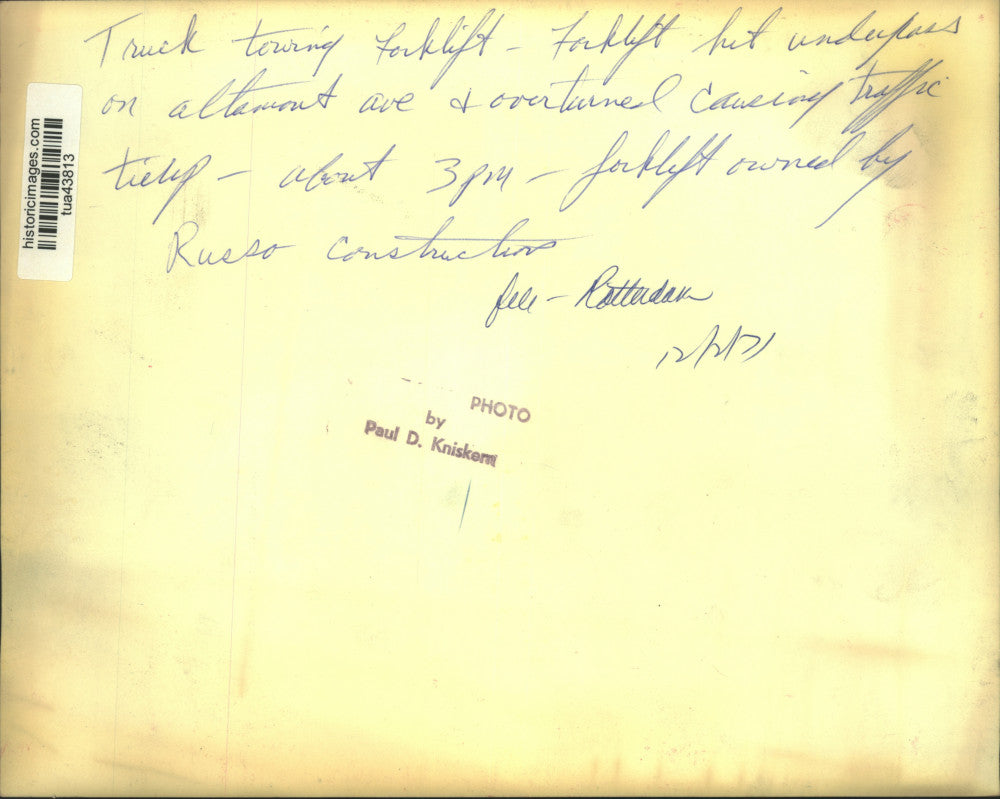 Truck towing Forklift - Forklift hit underpass
on altamont ave & overturned causing traffic
tieup - about 3 pm - forklift owned by
Russo Construction
file - Rotterdam
12/2/71
PHOTO
by
Paul D. Kniskern
historicimages.com
tua43813